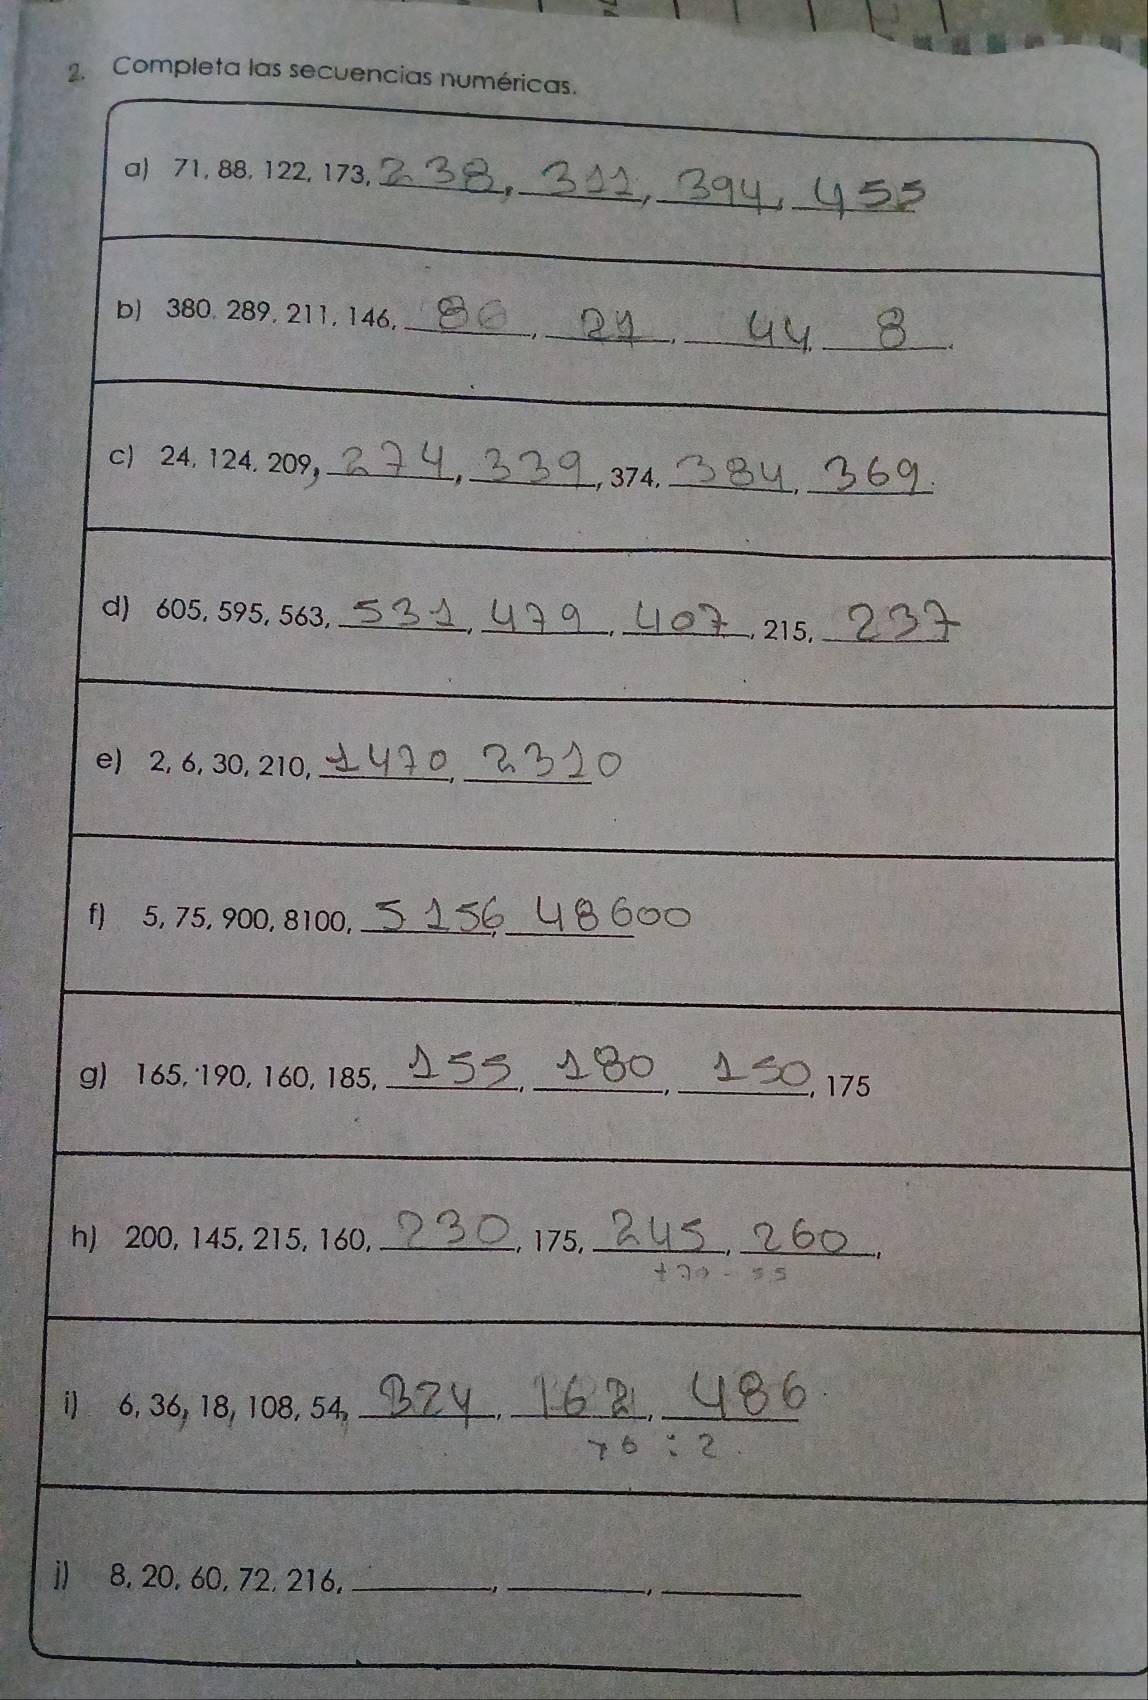 2. Completa las secuencias numéricas.
a) 71, 88, 122, 173, 238, 311, 394, 455
b) 380, 289, 211, 146, 86, 24, 44, 8.
c) 24, 124, 209, 274, 339, 374, 384, 369.
d) 605, 595, 563, 531, 479, 407, 215, 237
e) 2, 6, 30, 210, 1470, 2310
f) 5, 75, 900, 8100, 5156, 48600
g) 165, 190, 160, 185, 155, 180, 150, 175
h) 200, 145, 215, 160, 230, 175, 245, 260,
+70 - 55
i) 6, 36, 18, 108, 54, 324, 162, 486
×6 : 2
j) 8, 20, 60, 72, 216,